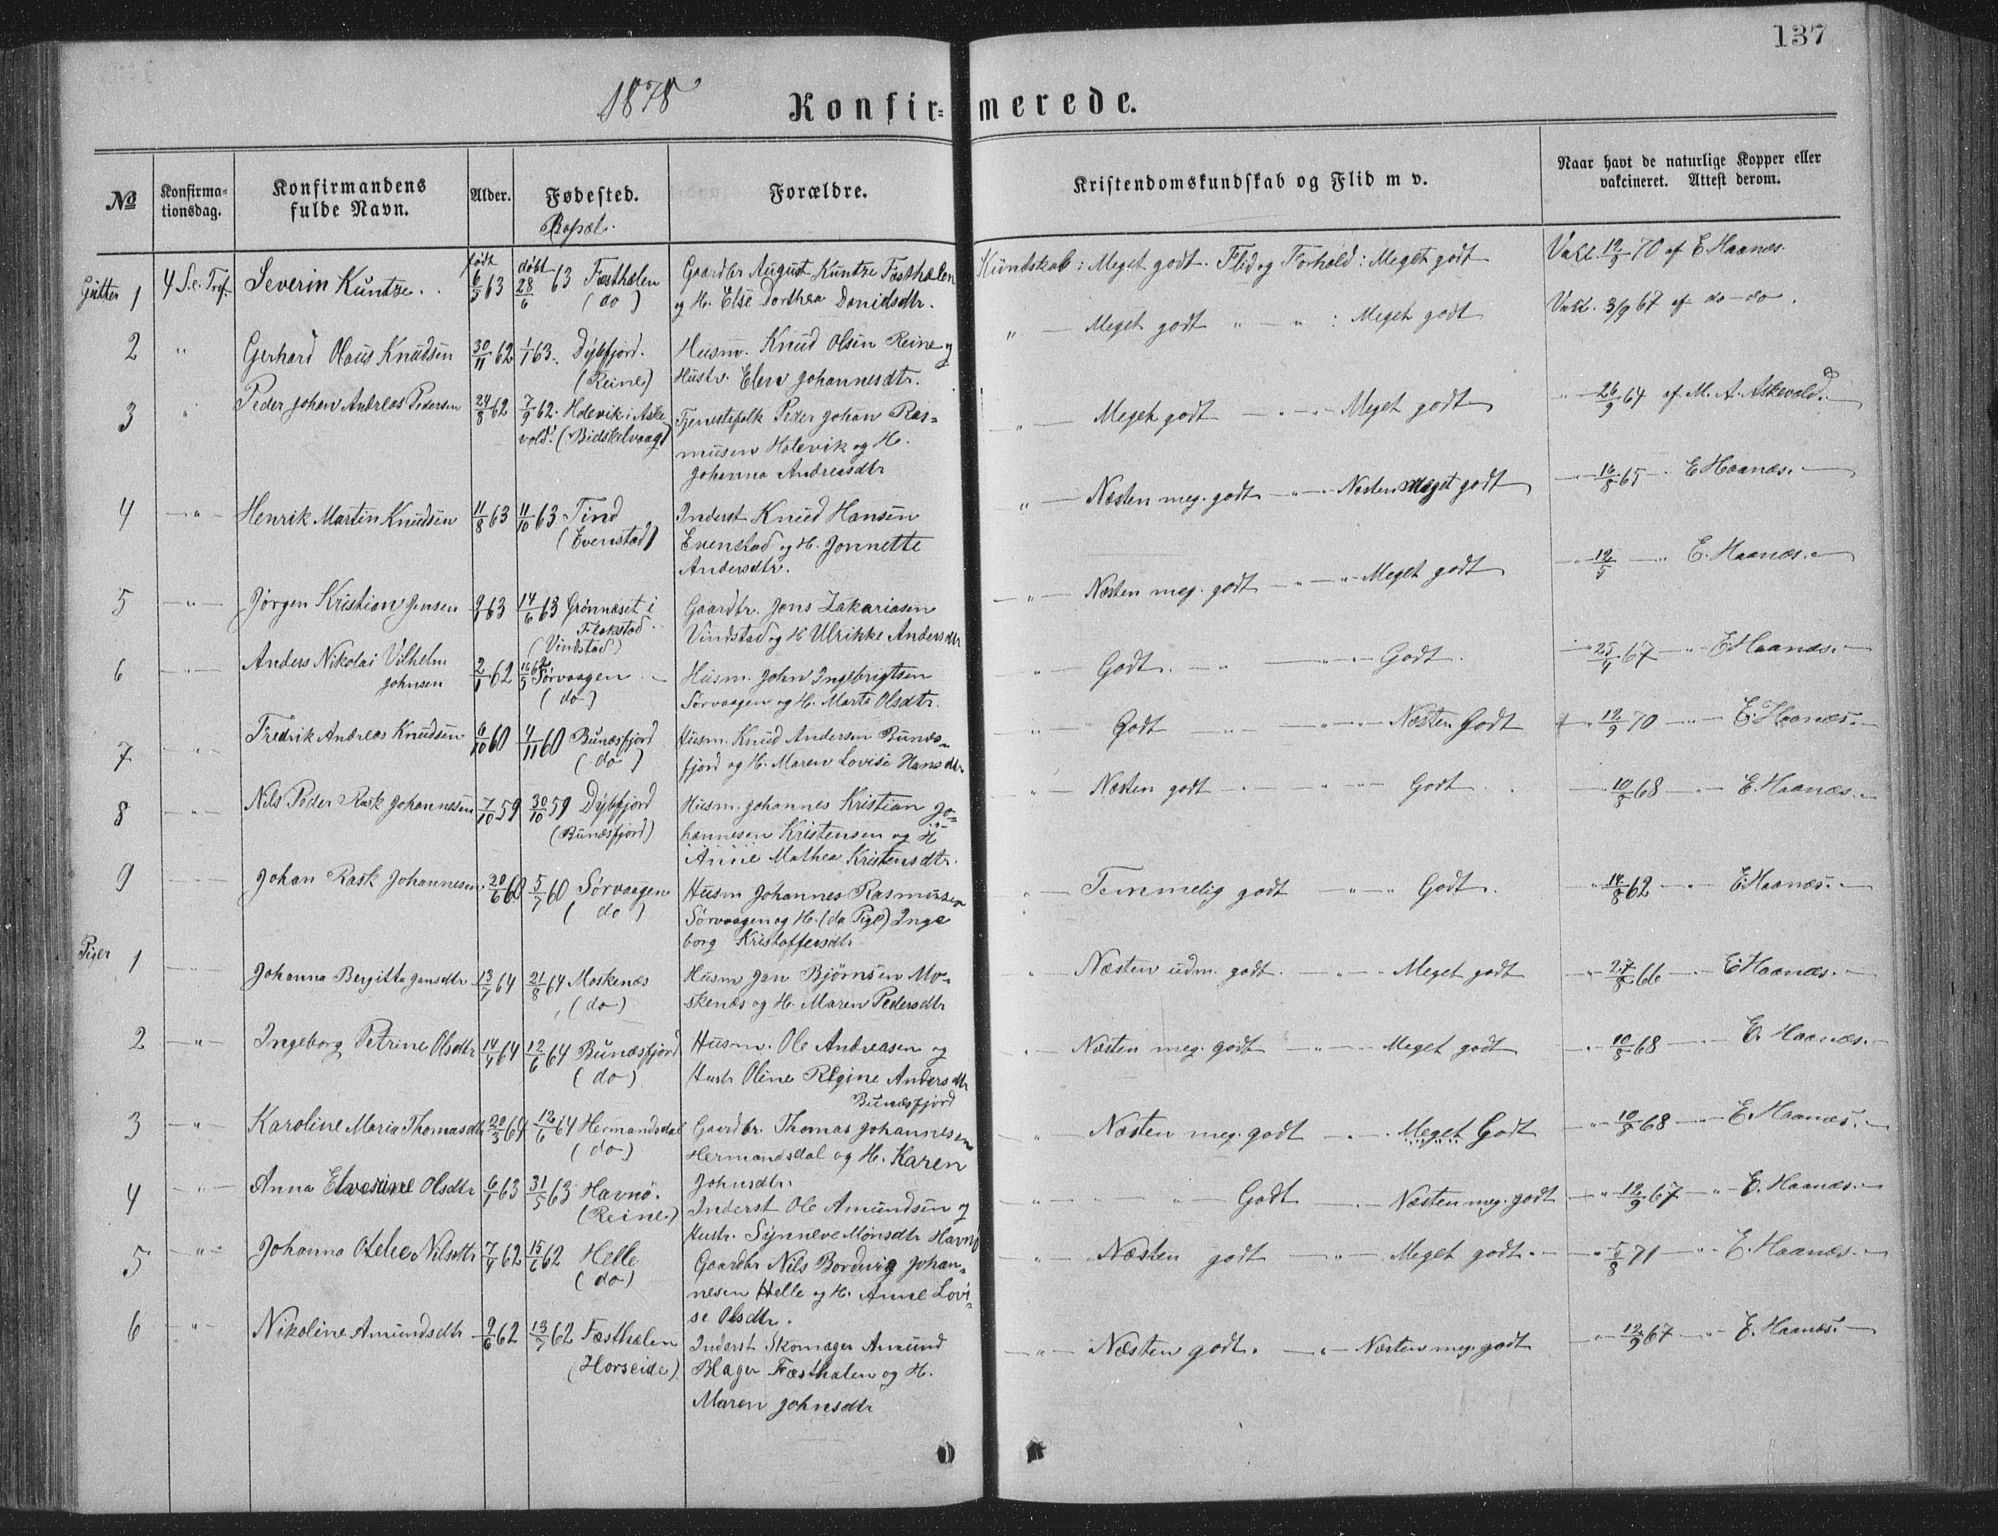 137
1878
Konfir= merede.
No
Konfirma-
tionsdag.
Konfirmandens
fulde Navn.
Alder.
Fødested.
Bopæl.
Forældre.
Kristendomskundskab og Flid m v.
Naar havt de naturlige Kopper eller
vakcineret. Attest derom.
født døbt
Gutter 1 4 S. e. Tref. Severin Kuntze. 6/5 63 28/6 63 Fæsthælen Gaardbr August Kuntze Fæsthælen Kundskab: Meget godt. Flid og Forhold: Meget godt Vakc. 12/9 70 af E. Haanæs.
(do) og H. Else Dorthea Danielsdtr.
2 " Gerhard Olaus Knudsen 30/11 62 1/1 63. Dybfjord. Husm. Knud Olsen Reine og " — Meget godt " — " : Meget godt Vakc. 3/9 67 af do - do.
(Reine) Hustr. Elen Johannesdtr.
3 " Peder Johan Andreas Pedersen 24/8 62 7/9 62. Holevik i Aske Tjenestefolk Peder Johan Ras= " — Meget godt — " — " — Meget godt " 26/9 64 af M. A. Askevold.
vold. (Bidskelvaag) musen Holevik og H.
Johanna Andreasdtr
4 — " — Henrik Martin Knudsen 11/8 63 11/10 63 Tind Inderst Knud Hansen " — Næsten meg. godt — " — " Næsten Meget godt — " — 16/8 65 — " E Haanæs.
(Evenstad) Evenstad og H. Jonnette
Andersdtr.
5 — " — Jørgen Kristian Jensen 9/1 63 14/6 63 Grønnæset i Gaardbr. Jens Zakariasen — " — Næsten meg. godt — " — " — Meget godt — " — 12/5 — " — E. Haanæs.
Flakstad Vindstad og H Ulrikke Andersdtr
(Vindstad)
6 — " — Anders Nikolai Vilhelm 2/1 62 16/5 62 Sørvaagen Husm. John Ingebrigtsen " — Godt. — " — " — " — Godt. — " 25/9 67 — " — E Haanæs.
Johnsen (do) Sørvaagen og H. Marta Olsdtr.
7 — " — Fredrik Andreas Knudsen 6/10 60 4/11 60 Bunæsfjord Husm. Knud Andersen Bunæs= — " — Godt — " — " — " — Næsten Godt " 12/9 70 — " — E. Haanæs.
(do) fjord og H. Maren Lovise Hansdtr
8 — " — Nils Peder Rask Johannesen 7/10 59 30/10 59 Dybfjord Husm. Johannes Kristian Jo- — " — Næsten godt — " — " — " — Godt. — " — 10/8 68 — " — E. Haanæs.
(Bunæsfjord) hannesen Kristensen og H
Anne Mathea Kristensdtr.
9 — " — Johan Rask Johannesen 20/6 60 5/7 60 Sørvaagen Husm Johannes Rasmussen " — Temmelig godt — " — " — Godt. — " 14/8 62 — " — E. Haanæs.
(do) Sørvaagen og H. (da Pige) Inge
borg Kristoffersdtr
Piger 1 — " — Johanna Bergitta Jansdtr 13/7 64 21/8 64 Moskenæs Husm Jan Bjørnsen Mo- " — Næsten udm. godt. — " — " — Meget godt — " 27/8 66 — " — E. Haanæs.
(do) skenæs og H. Maren Pedersdtr
2 — " — Ingeborg Petrine Olsdtr 14/4 64 12/6 64 Bunæsfjord Husm. Ole Andreasen og — " — Næsten meg. godt — " — " — Meget godt — " — 10/8 68 — " — E. Haanæs.
(do) Hustr Oline Regine Andersdtr
Bunæsfjord
3 — " — Karoline Maria Thomasdtr 20/3 64 12/6 64 Hermandsdal Gaardbr. Thomas Johannesen — " — Næsten meg. godt — " — Meget Godt — " 10/8 68 — " — E. Haanæs.
(do) Hermandsdal og H. Karen
Johnsdtr.
4 — " — Anna Olsdtr 6/1 63 31/5 63 Havnø. Inderst Ole Amundsen og " " " Godt — Næsten meg. godt — " — 12/9 67 — " — E. Haanæs.
(Reine) Hustr. Synneve Monsdtr Havnø
5 — " — Johanna Nilsdtr 7/4 62 15/6 62 Helle Gaardbr Nils Bordevig Johan= — " — Næsten godt — " — Meget godt. — " — 5/8 71 — " — E. Haanæs.
(do) nesen Helle og H. Anne Lovi-
se Olsdtr.
6 — " — Nikoline Amundsdtr 9/6 62 13/7 62 Fæsthælen Inderst Skomager Amund — " — Næsten godt. — " — Næsten meg. godt — " — 12/9 67 — " — E. Haanæs.
(Horseide) Blager Fæsthælen og H.
Maren Johnsdtr